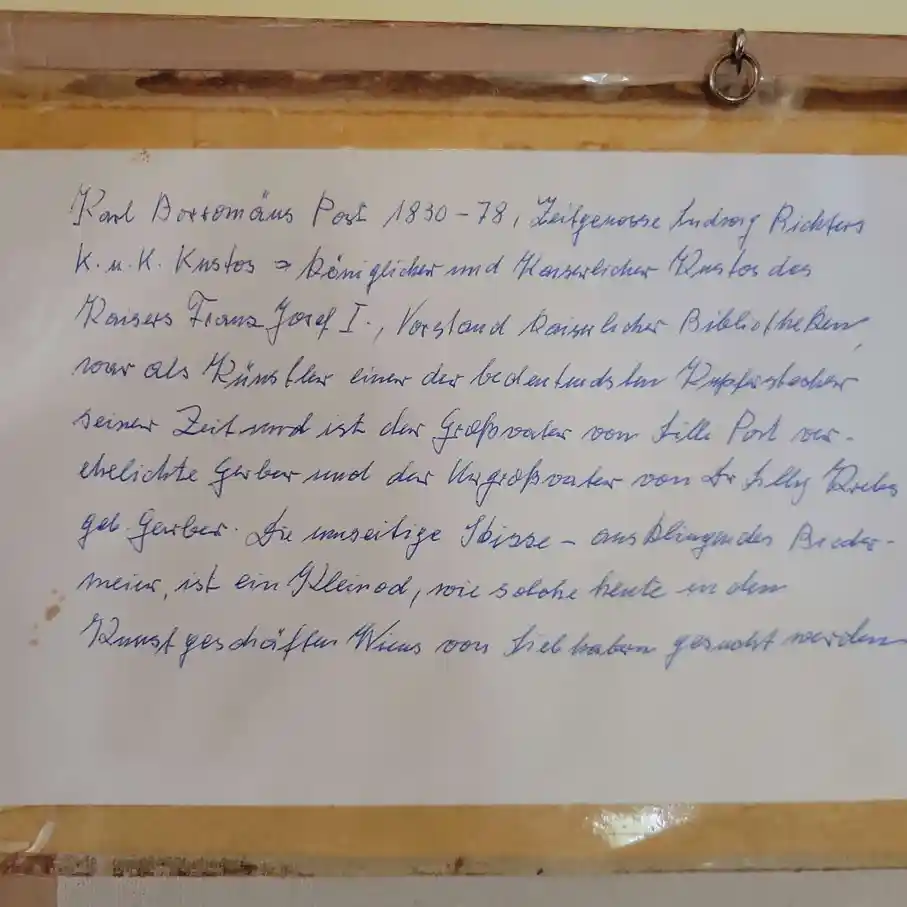 Karl Borromäus Post 1830-78, Zeitgenosse Ludwig Richters
K. u. K. Kustos = Königlicher und Kaiserlicher Kustos des
Kaisers Franz Josef I., Vorstand Kaiserlicher Bibliotheken,
war als Künstler einer der bedeutendsten Kupferstecher
seiner Zeit und ist der Großvater von Lilli Post ver-
ehelichte Gerber und der Urgroßvater von Dr Lilly Krebs
geb. Gerber. Die umseitige Skizze - ausklingendes Bieder-
meier, ist ein Kleinod, wie solche heute in den
Kunstgeschäften Wiens von Liebhabern gesucht werden